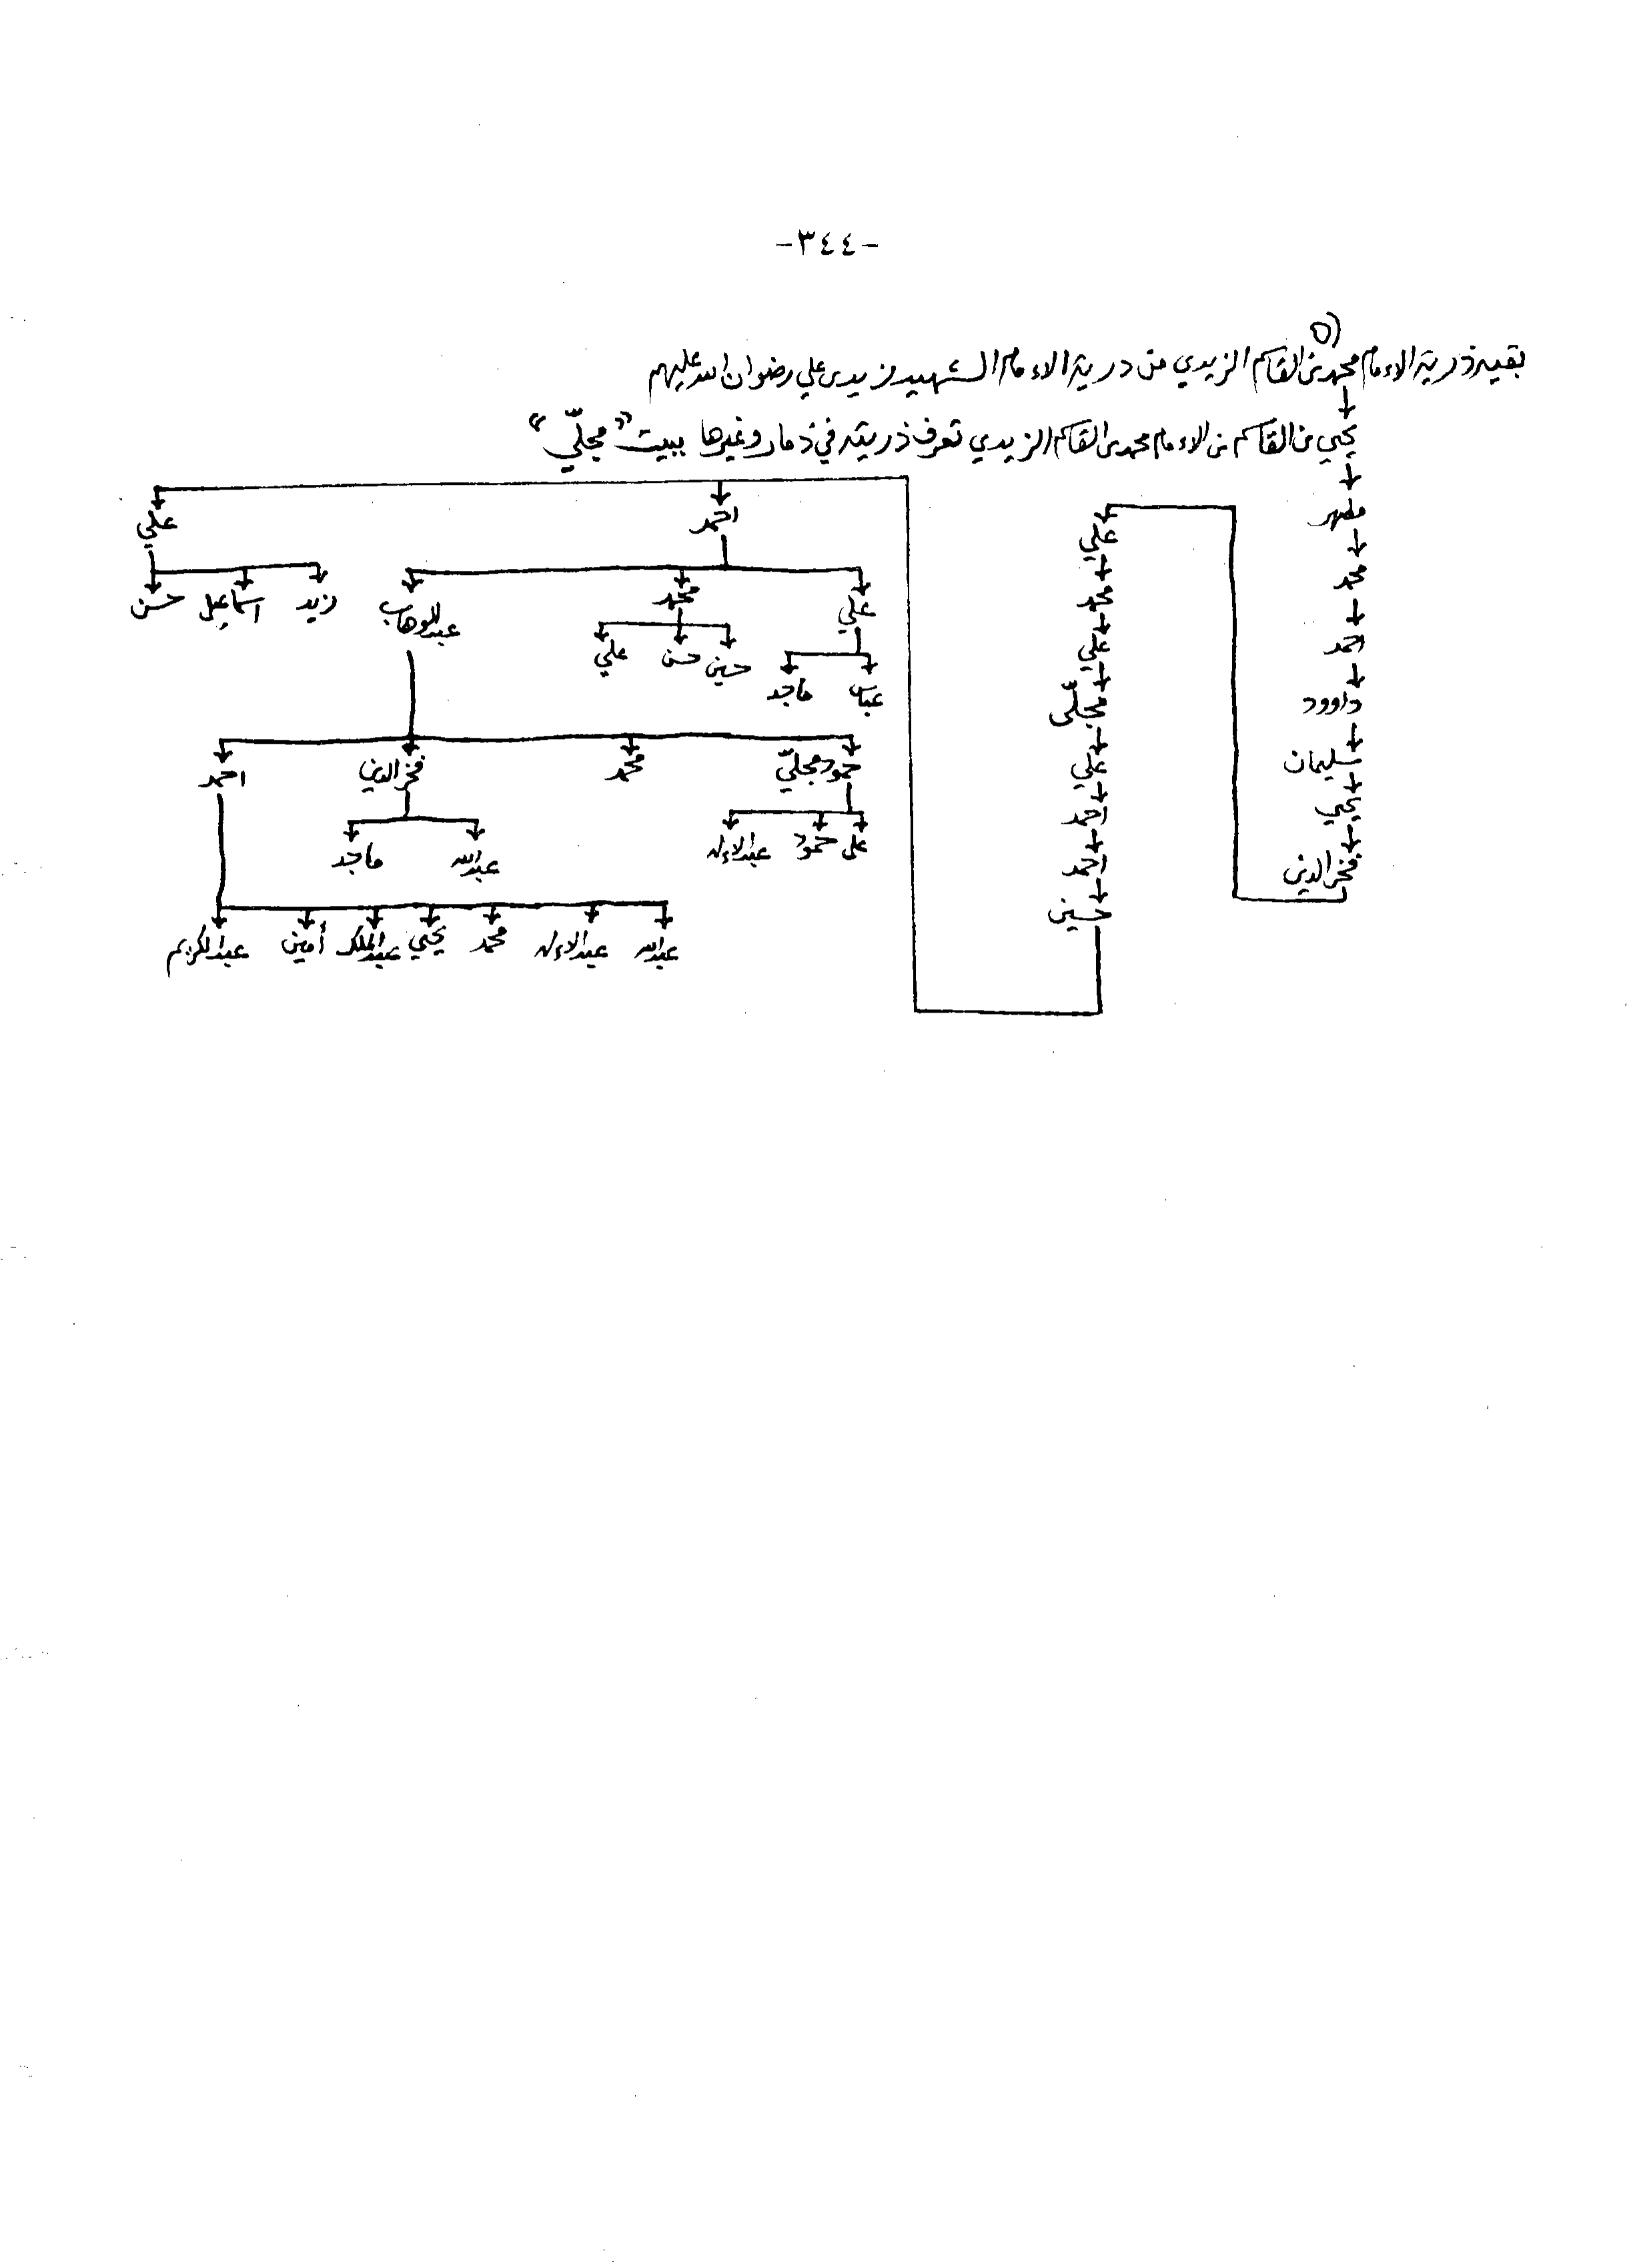 -٣٤٤-
(٥
بقية ذرية الاءمام محمد بن القاسم الزيدي من ذرية الاءمام الشهيد زيد بن علي رضوان الله عليهم
يحيى بن القاسم بن الاءمام محمد بن القاسم الزيدي تعرف ذريته في ذمار وغيرها ببيت "مجلّي"
مطهر
محمد
احمد
داوود
سليمان
يحيى
فخر الدين
علي
محمد
علي
مجلّي
علي
احمد
احمد
حسين
احمد علي
علي محمد عبدالوهاب زيد اسماعيل حسن
عباس ماجد حسين حسن علي
حمود مجلّي محمد فخر الدين احمد
علي حمود عبدالاءله عبدالله ماجد
عبدالله عبدالاءله محمد يحيى عبدالملك أمين عبدالكريم